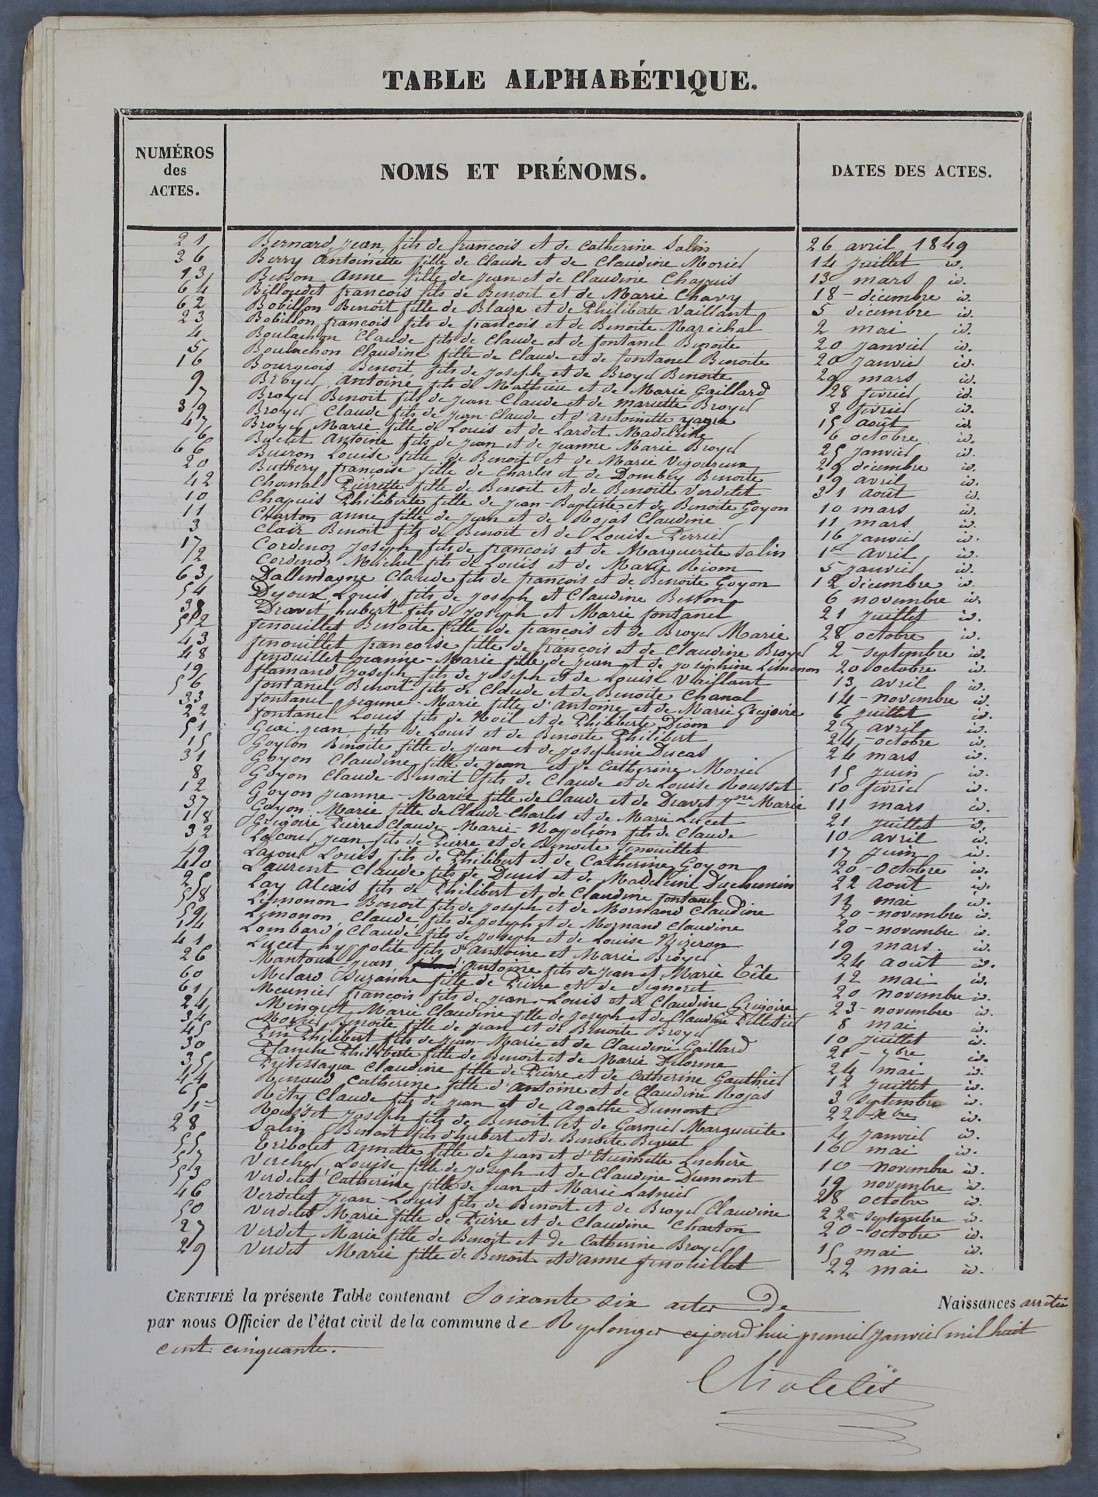 TABLE ALPHABÉTIQUE.
NUMÉROS des ACTES. NOMS ET PRÉNOMS. DATES DES ACTES.
21 Bernard, Jean, fils de francois et de Catherine Salin 26 avril 1849
36 Berry Antoinette fille de Claude et de Claudine Morel 14 juillet id.
13 Besson Anne fille de Jean et de Claudine Chapuis 13 mars id.
64 Billoudet francois fils de Benoit et de Marie Charvy 18 - decembre id.
62 Bobillon Benoit fille de Blaise et de Philiberte Vaillant 5 decembre id.
23 Bobillon francois fils de francois et de Benoite Maréchal 2 mai id.
4 Boulachon Claude fils de Claude et de fontanel Benoite 20 janvier id.
5 Boulachon Claudine fille de Claude et de fontanel Benoite 20 janvier id.
16 Bourgeois Benoit fils de Joseph et de Broyer Benoite 29 mars id.
9 Broyer Antoine fils de Mathieu et de Marie Gaillard 28 fevrier id.
7 Broyer Benoit fils de Jean-Claude et de Mariette Broyer 8 fevrier id.
39 Broyer Claude fils de Jean-Claude et d'Antoinette 15 août id.
47 Broyer Marie fille de Louis et de Lardet Madeleine 6 octobre id.
6 Buchet Antoine fils de Jean et de Jeanne Marie Broyer 25 janvier id.
66 Buiron Louise fille de Benoit et de Marie Vigoureux 29 decembre id.
20 Buthery francoise fille de Charles et de Dombey Benoite 19 avril id.
42 Chanal Pierrette fille de Benoit et de Benoite Verdelet 31 août id.
10 Chapuis Philiberte fille de Jean-Baptiste et de Benoite Goyon 10 mars id.
11 Charton anne fille de Jean et de Rojas Claudine 11 mars id.
3 Clair Benoit fils de Benoit et de Louise Perrier 16 Janvier id.
17 Cordenod Joseph fils de francois et de Marguerite Salin 1er avril id.
2 Cordenod Michel fils de Louis et de Marie Riom 5 janvier id.
63 Dallemagne Claude fils de francois et de Benoite Goyon 12 decembre id.
54 Dejoux Louis fils de Joseph et Claudine Besson 6 novembre id.
38 Dravet hubert fils de Joseph et Marie fontanel 21 juillet id.
52 fenouillet Benoite fille de francois et de Broyer Marie 28 octobre id.
43 fenouillet francoise fille de francois et de Claudine Broyer 2 - septembre id.
48 fenouillet Jeanne-Marie fille de Jean et de Josephine Limonon 20 octobre id.
19 flamand Joseph fils de Joseph et de Louise Vaillant 13 avril id.
56 fontanel Benoit fils de Claude et de Benoite Chanal 14 - novembre id.
33 fontanel Jeanne-Marie fille d'Antoine et de Marie Gregoire 6 juillet id.
22 fontanel Louis fils de Noël et de Philiberte Diom 27 avril id.
51 Jean fils de Louis et de Benoite Philibert 24 octobre id.
15 Goyon Benoite fille de Jean et de Josephine Ducas 24 mars id.
31 Goyon Claudine fille de Jean et de Catherine Morel 15 juin id.
8 Goyon Claude-Benoit fils de Claude et de Louise Rousset 10 fevrier id.
12 Goyon Jeanne-Marie fille de Claude et de Dravet Jne Marie 11 mars id.
37 Goyon Marie fille de Claude-Charles et de Marie Lucet 21 juillet id.
18 Grégoire Pierre Claude Marie Napoléon fils de Claude 10 avril id.
32 Lacour Jean fils de Pierre et de Benoite fenouillet 17 juin id.
49 Lacour Louis fils de Philibert et de Catherine Goyon 20 octobre id.
40 Laurent Claude fils de Denis et de Madeleine Duchemin 22 août id.
25 Lay Alexis fils de Philibert et de Claudine fontanel 12 mai id.
58 Limonon Benoit fils de Joseph et de Mornand Claudine 20 - novembre id.
59 Limonon Claude fils de Joseph et de Mornand Claudine 20 - novembre id.
14 Lombard Claude fils de Joseph et de Louise 19 mars id.
41 Lucet hyppolite fils d'Antoine et Marie Broyer 24 août id.
26 Mantoux Jean Antoine fils de Jean et Marie Tête 12 mai id.
60 Melard Suzanne fille de Pierre et de Signoret 20 novembre id.
61 Meunier francois fils de Jean-Louis et de Claudine Gregoire 23 - novembre id.
24 Minguet Marie Claudine fille de Joseph et de Claudine 8 mai id.
34 Benoite fille de Jean et de Benoite Broyer 10 juillet id.
45 Pin Philibert fils de Jean-Marie et de Claudine Gaillard 20 - 7bre id.
30 Planche Philiberte fille de Benoit et de Marie Delorme 24 mai id.
35 Claudine fille de Pierre et de Catherine Gauthier 12 juillet id.
44 Renaud Catherine fille d'Antoine et de Claudine Rojas 3 septembre id.
65 Réty Claude fils de Jean et de Agathe Dumont 22 Xbre id.
1er Rousset Joseph fils de Benoit et de Garnier Marguerite 4 janvier id.
28 Salin Benoit fils d'hubert et de Benoite Biguet 16 mai id.
55 Tribolet Annette fille de Jean et d'Etiennette Luchère 10 - novembre id.
57 Louise fille de Joseph et de Claudine Dumont 19 novembre id.
53 Verdelet Catherine fille de Jean et Marie Lasnier 28 octobre id.
46 Verdelet Jean-Louis fils de Benoit et de Broyer Claudine 22 - septembre id.
50 Verdelet Marie fille de Pierre et de Claudine Charton 20 - octobre id.
27 Verdet Marie fille de Benoit et de Catherine Broyer 15 mai id.
29 Verdet Marie fille de Benoit et d'anne fenouillet 22 mai id.
CERTIFIÉ la présente Table contenant Soixante six actes De Naissances arrêtée
par nous Officier de l'état civil de la commune de Replonges cejourd'hui premier janvier mil huit
cent cinquante.